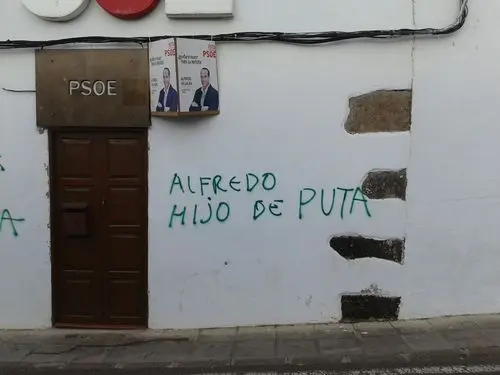 PSOE
PSOE
PSOE
ALFREDO
HIJO DE PUTA
A